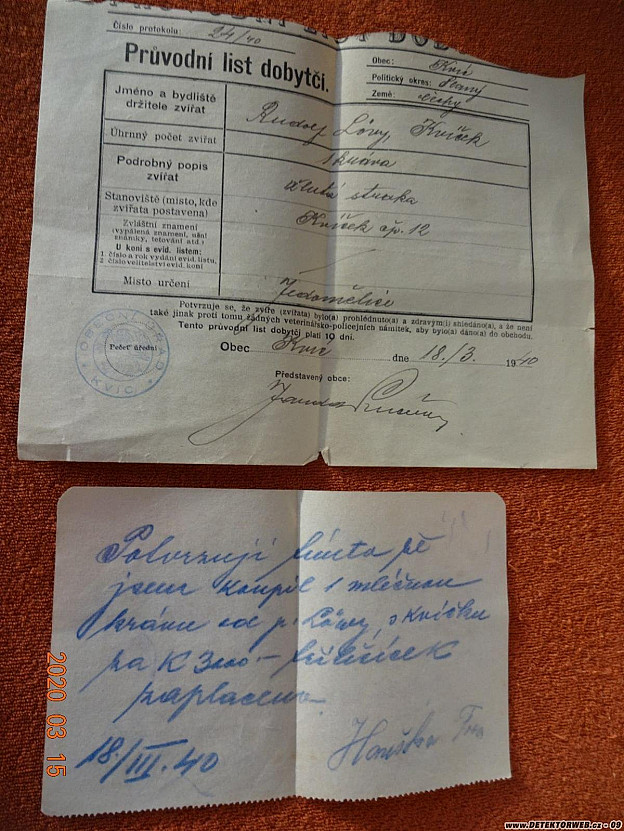 Číslo protokolu: 24/40
Průvodní list dobytčí.
Obec: Kvíc
Politický okres: Slaný
Země: Čechy
Jméno a bydliště
držitele zvířat
Rudolf Löwy, Kvíček
Úhrnný počet zvířat
1 kráva
Podrobný popis
zvířat
žlutá straka
Stanoviště (místo, kde
zvířata postavena)
Kvíček čp. 12
Zvláštní znamení
(vypálená znamení, ušní
známky, tetování atd.)
U koní s evid. listem:
1. číslo a rok vydání evid. listu,
2. číslo velitelství evid. koní
Místo určení
Jedomělice
Potvrzuje se, že zvíře (zvířata) bylo(a) prohlédnuto(a) a zdravým(i) shledáno(a), a že není
také jinak proti tomu žádných veterinářsko-policejních námitek, aby bylo(a) dáno(a) do obchodu.
Tento průvodní list dobytčí platí 10 dní.
OBECNÍ ÚŘAD
KVÍC
Pečeť úřední
Obec Kvíc dne 18./3. 1940
Představený obce:
Potvrzuji tímto že
jsem koupil 1 mléčnou
krávu od p. Löwy, z Kvíčku
za K 3000 – třitisíce K
zaplaceno
18./III. 40
Houška Fr
2020 03 15
www.DETEKTORWEB.cz - 09